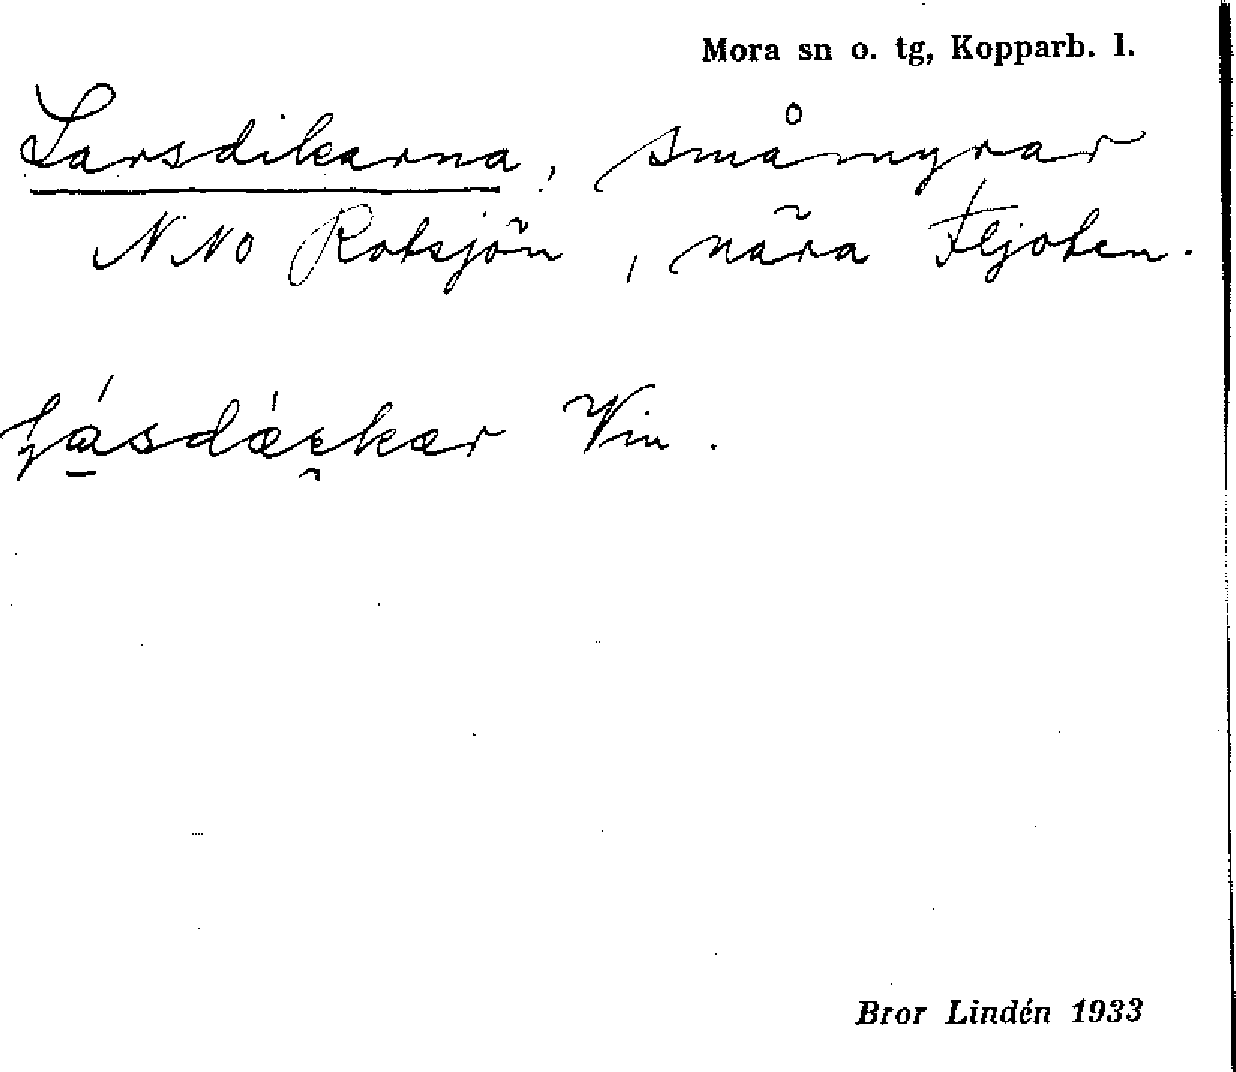 Mora sn o. tg, Kopparb. l.
Larsdikarna, småmyrar
NNO Rotsjön, nära Fljoten.
Vin.
Bror Lindén 1933